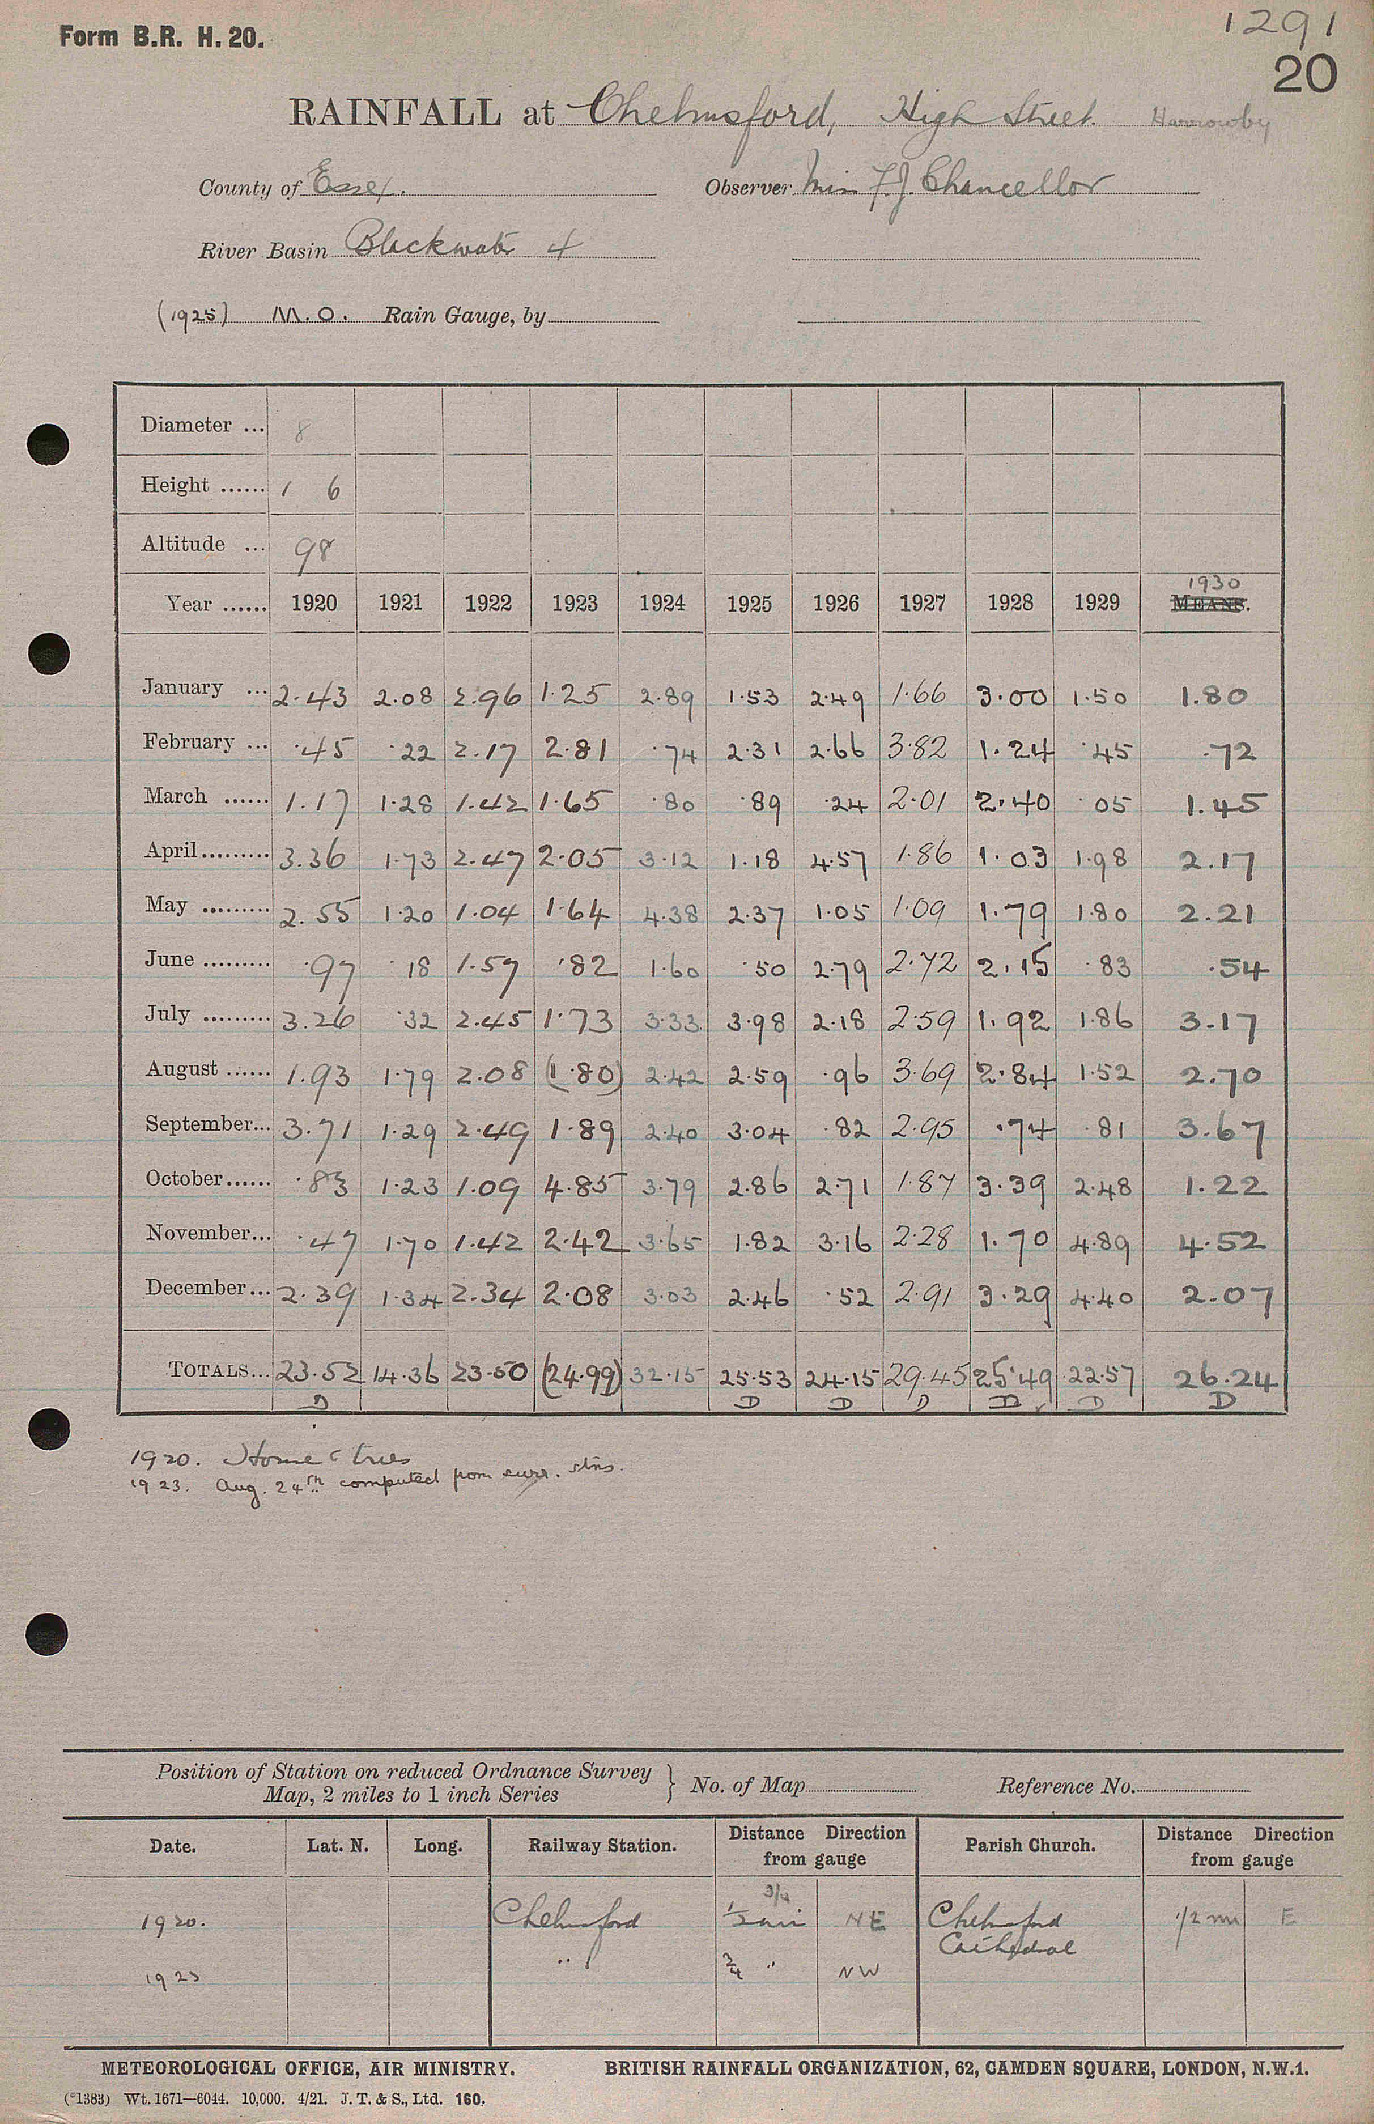 Form B.R. H. 20.
1291
20
RAINFALL at Chelmsford, High Street Harrowby
County of Essex. Observer Miss F.J. Chancellor
River Basin Blackwater 4
(1925) M.O. Rain Gauge, by
Diameter ... 8
Height ...... 1 6
Altitude ... 98
1930
Year ...... 1920 1921 1922 1923 1924 1925 1926 1927 1928 1929 MEANS.
January ... 2.43 2.08 2.96 1.25 2.89 1.53 2.49 1.66 3.00 1.50 1.80
February ... .45 .22 2.17 2.81 .74 2.31 2.66 3.82 1.24 .45 .72
March ...... 1.17 1.28 1.42 1.65 .80 .89 .24 2.01 2.40 .05 1.45
April......... 3.36 1.73 2.47 2.05 3.12 1.18 4.57 1.86 1.03 1.98 2.17
May ......... 2.55 1.20 1.04 1.64 4.38 2.37 1.05 1.09 1.79 1.80 2.21
June ......... .97 .18 1.57 .82 1.60 .50 2.79 2.72 2.15 .83 .54
July ......... 3.26 .32 2.45 1.73 3.33 3.98 2.18 2.59 1.92 1.86 3.17
August ...... 1.93 1.79 2.08 (1.80) 2.42 2.59 .96 3.69 2.84 1.52 2.70
September... 3.71 1.29 2.49 1.89 2.40 3.04 .82 2.95 .74 .81 3.67
October...... .83 1.23 1.09 4.85 3.79 2.86 2.71 1.87 3.39 2.48 1.22
November... .47 1.70 1.42 2.42 3.65 1.82 3.16 2.28 1.70 4.89 4.52
December... 2.39 1.34 2.34 2.08 3.03 2.46 .52 2.91 3.29 4.40 2.07
TOTALS... 23.52 14.36 23.50 (24.99) 32.15 25.53 24.15 29.45 25.49 22.57 26.24
D D D D D D D
1920. House & trees
1923. Aug. 24th computed from surr. stns.
Position of Station on reduced Ordnance Survey
Map, 2 miles to 1 inch Series } No. of Map Reference No.
Date. Lat. N. Long. Railway Station. Distance Direction from gauge Parish Church. Distance Direction from gauge
3/4
1920. Chelmsford 1/2 mi NE Chelmsford Cathedral 1/2 mi E
1923 " 3/4 " NW
METEOROLOGICAL OFFICE, AIR MINISTRY. BRITISH RAINFALL ORGANIZATION, 62, CAMDEN SQUARE, LONDON, N.W.1.
(*1383) Wt. 1671—6044. 10,000. 4/21. J. T. & S., Ltd. 160.